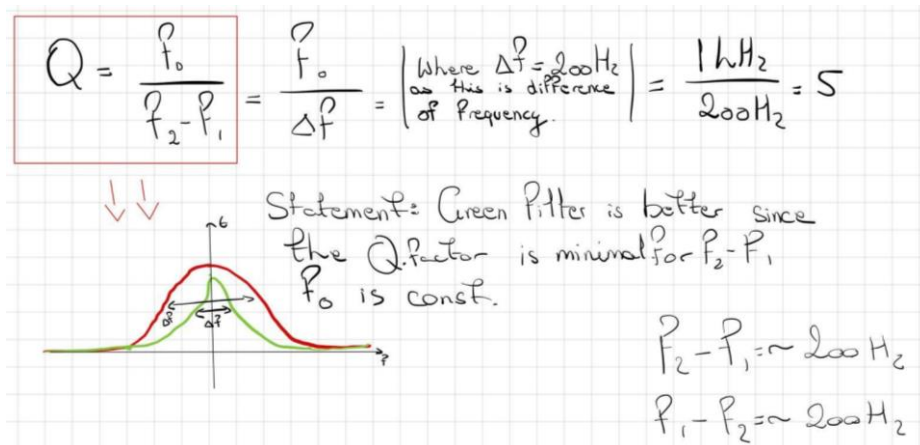 Q = f₀ / (f₂ - f₁) = f₀ / Δf = | Where Δf = 200Hz as this is difference of frequency. | = 1kHz / 200Hz = 5
Statement: Green filter is better since
the Q.factor is minimal for f₂-f₁
f₀ is const.
G
Δf
Δf
f
f₂ - f₁ =~ 200Hz
f₁ - f₂ =~ 200Hz